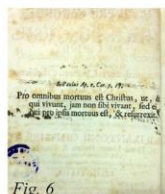 Pro omnibus mortuus est Christus, ut, &
qui vivunt, jam non sibi vivant, sed ei
qui pro ipsis mortuus est, & resurrexit.
Fig. 6